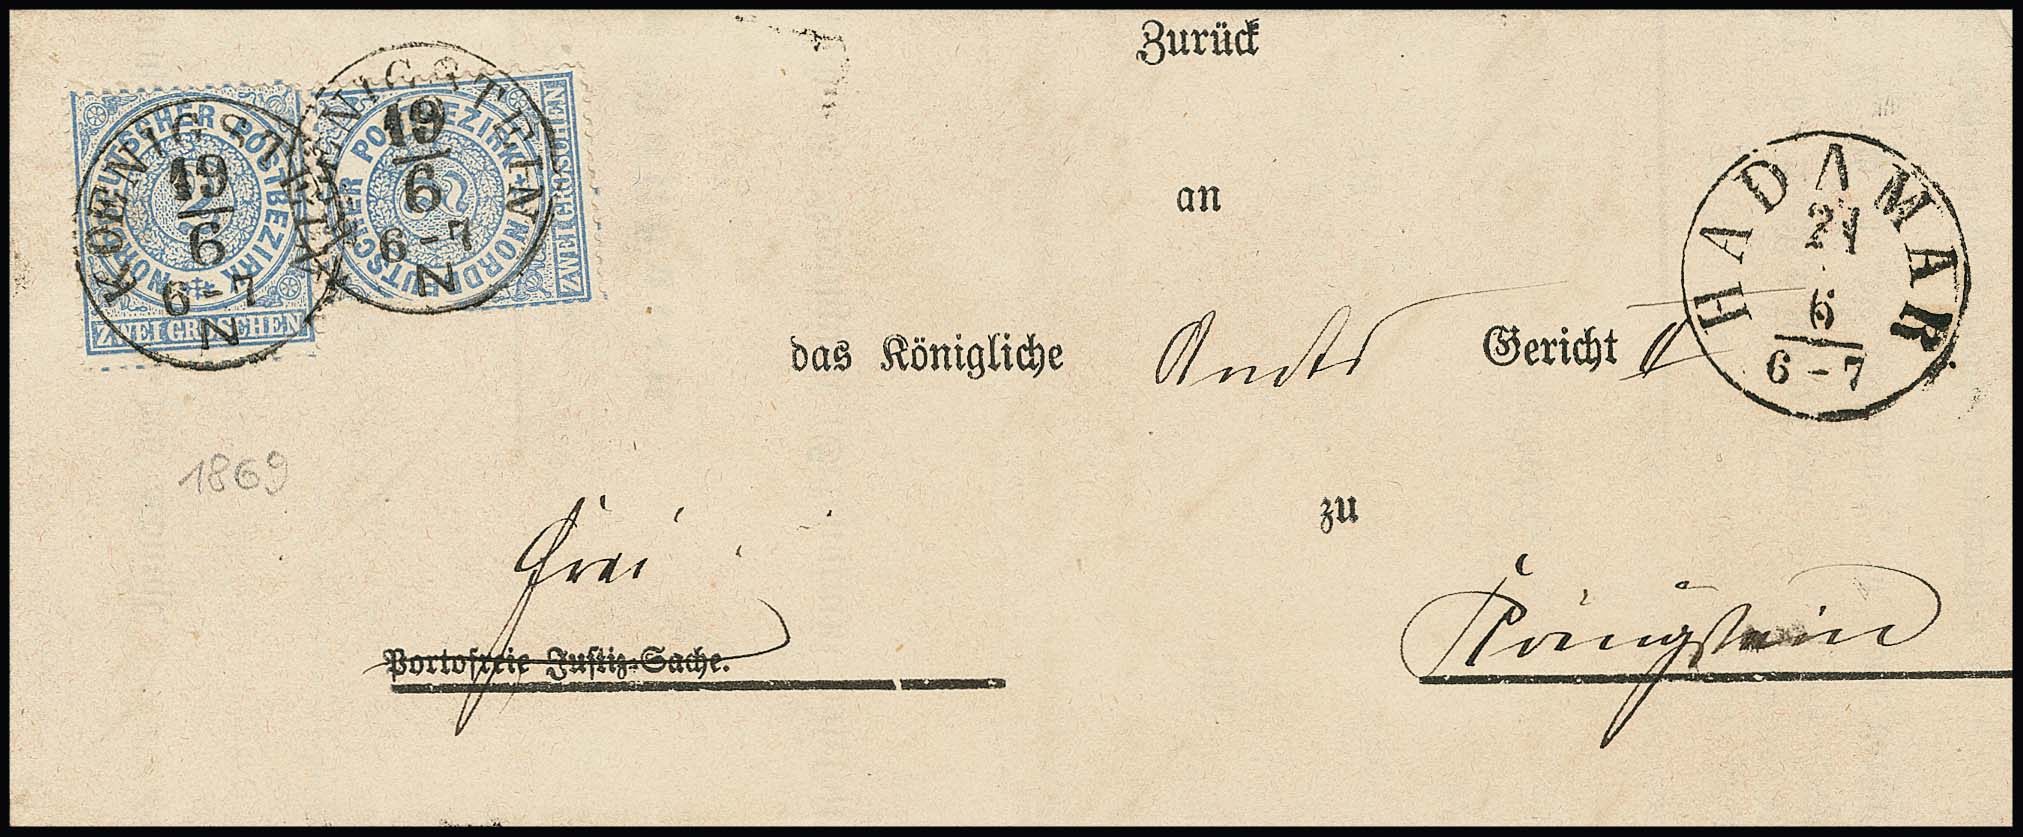 Zurück
an
das Königliche Amts Gericht
zu
Königstein
Frei
Portofreie Justiz-Sache.
1869
KOENIGSTEIN
19
6
6-7
N
NORDDEUTSCHER POSTBEZIRK
2
ZWEI GROSCHEN
KOENIGSTEIN
19
6
6-7
N
NORDDEUTSCHER POSTBEZIRK
2
ZWEI GROSCHEN
HADAMAR
21
6
6-7